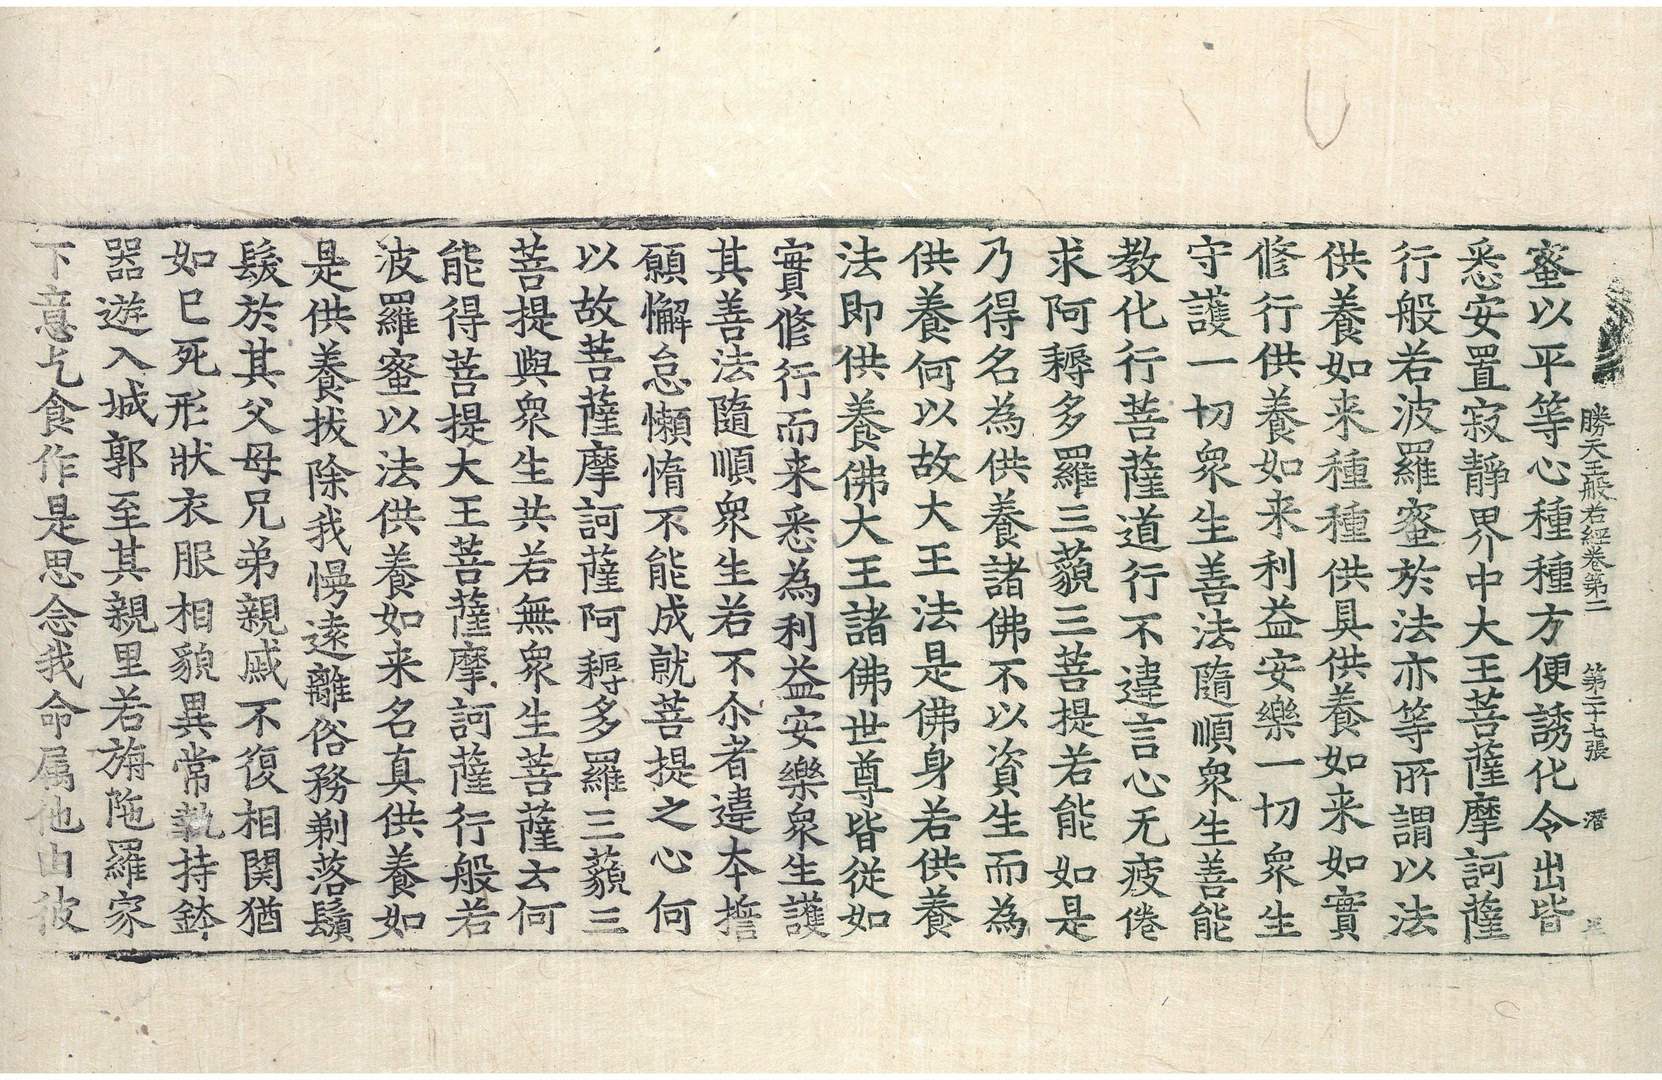 勝天王般若經卷第二 第二十七張 潛
蜜以平等心種種方便誘化令出皆
悉安置寂靜界中大王菩薩摩訶薩
行般若波羅蜜於法亦等所謂以法
供養如来種種供具供養如来如實
修行供養如来利益安樂一切衆生
守護一切衆生善法隨順衆生善能
教化行菩薩道行不違言心无疲倦
求阿耨多羅三藐三菩提若能如是
乃得名為供養諸佛不以資生而為
供養何以故大王法是佛身若供養
法即供養佛大王諸佛世尊皆從如
實修行而来悉為利益安樂衆生護
其善法隨順衆生若不尒者違本誓
願懈怠懶惰不能成就菩提之心何
以故菩薩摩訶薩阿耨多羅三藐三
菩提與衆生共若無衆生菩薩云何
能得菩提大王菩薩摩訶薩行般若
波羅蜜以法供養如来名真供養如
是供養拔除我慢遠離俗務剃落鬚
髮於其父母兄弟親戚不復相関猶
如已死形狀衣服相貌異常執持鉢
器遊入城郭至其親里若旃陁羅家
下意乞食作是思念我命属他由彼